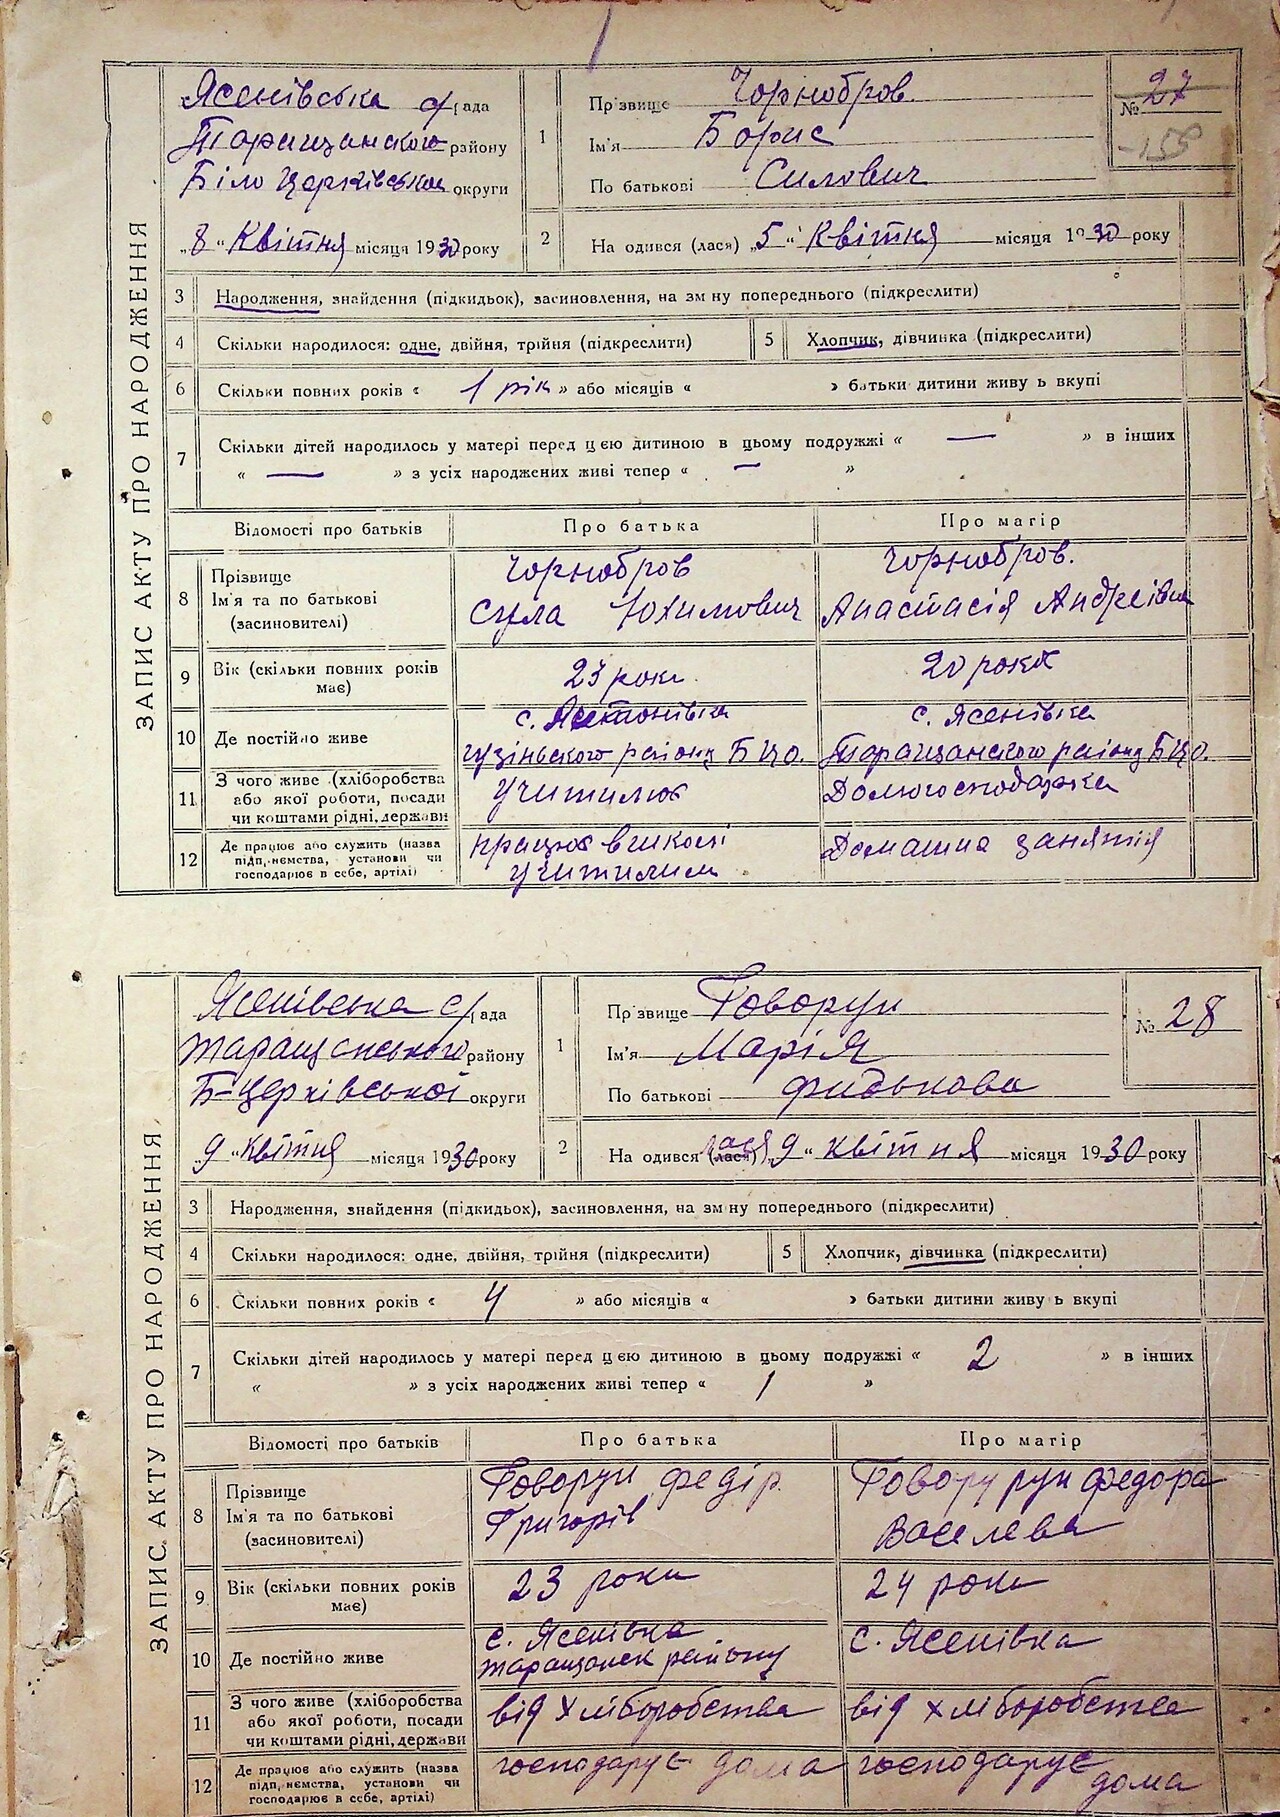 ЗАПИС АКТУ ПРО НАРОДЖЕННЯ
Ясенівська с/рада
Таращанского району
Біло Церківської округи
„8“ Квітня місяця 1930 року
1
Прізвище Чорнобров.
Ім'я Борис
По батькові Силович
№ 27
-155
2
На одився (лася) „5“ Квітня місяця 1930 року
3 Народження, знайдення (підкидьок), засиновлення, на зм ну попереднього (підкреслити)
4 Скільки народилося: одне, двійня, трійня (підкреслити) 5 Хлопчик, дівчинка (підкреслити)
6 Скільки повних років « 1 рік » або місяців « » батьки дитини живу ь вкупі
7 Скільки дітей народилось у матері перед цією дитиною в цьому подружжі « — » в інших
« — » з усіх народжених живі тепер « — »
Відомості про батьків Про батька Про матір
8 Прізвище
Ім'я та по батькові
(засиновителі)
Чорнобров
Сула Юхимович
Чорнобров.
Анастасія Андреівна
9 Вік (скільки повних років
має)
23 роки
20 рокв
10 Де постійно живе
с.
району БЦО.
с. Ясенівка
Таращанского району БЦО.
11 З чого живе (хліборобства
або якої роботи, посади
чи коштами рідні, держави
Учителює
Домогосподарка
12 Де працює або служить (назва
підп,иємства, установи чи
господарює в себе, артілі)
працює в школі
учителем
Домашна заняття
ЗАПИС АКТУ ПРО НАРОДЖЕННЯ
Ясенівська с/рада
Таращанського району
Б-Церківської округи
„9“ квітня місяця 1930 року
1
Прізвище Говорун
Ім'я Марія
По батькові Фидькова
№ 28
2
На одився (лася) лася „9“ квітня місяця 1930 року
3 Народження, знайдення (підкидьок), засиновлення, на зм ну попереднього (підкреслити)
4 Скільки народилося: одне, двійня, трійня (підкреслити) 5 Хлопчик, дівчинка (підкреслити)
6 Скільки повних років « 4 » або місяців « » батьки дитини живу ь вкупі
7 Скільки дітей народилось у матері перед цією дитиною в цьому подружжі « 2 » в інших
« » з усіх народжених живі тепер « 1 »
Відомості про батьків Про батька Про матір
8 Прізвище
Ім'я та по батькові
(засиновителі)
Говорун Федір.
Григорів
Говору рун Федора
Васелева
9 Вік (скільки повних років
має)
23 роки
24 роки
10 Де постійно живе
с. Ясенівка
таращанск району
с. Ясенівка
11 З чого живе (хліборобства
або якої роботи, посади
чи коштами рідні, держави
від хліборобства
від хліборобства
12 Де працює або служить (назва
підп,иємства, установи чи
господарює в себе, артілі)
господарує дома
господарує
дома